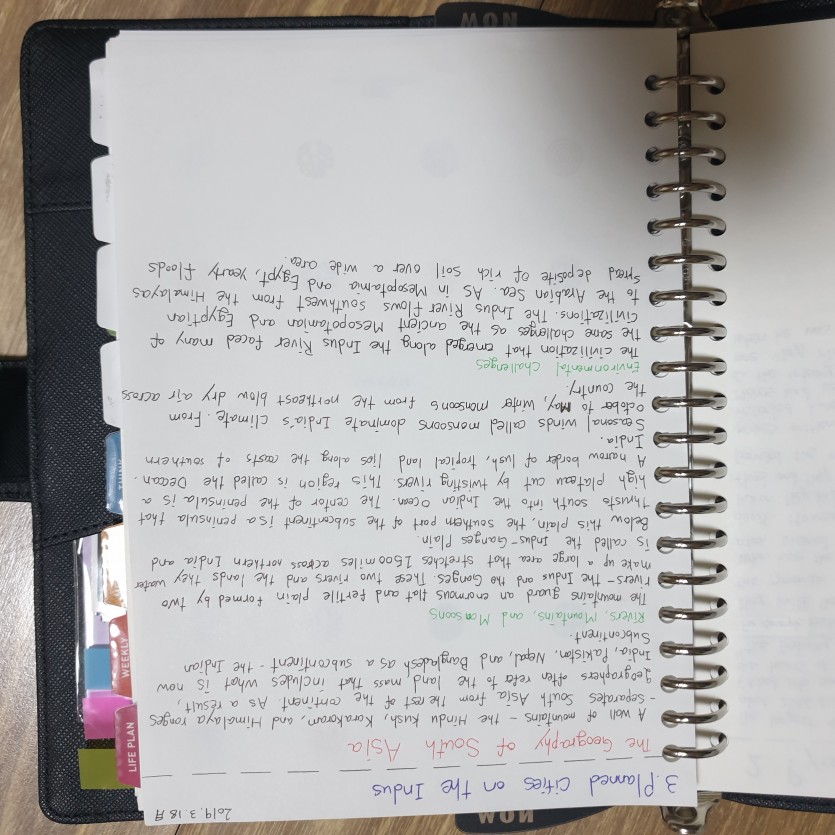 2019. 3. 18 月
3. Planned Cities on the Indus
The Geography of South Asia
A wall of mountains - the Hindu kush, Karakoram, and Himalaya ranges
- separates South Asia from the rest of the continent. As a result,
geographers often refer to the land mass that includes what is now
India, Pakistan, Nepal, and Bangladesh as a subcontinent - the Indian
Subcontinent.
Rivers, Mountains, and Monsoons
The mountains guard an enormous flat and fertile plain formed by two
rivers - the Indus and the Ganges. These two rivers and the lands they water
make up a large area that stretches 1500 miles across northern India and
is called the Indus-Ganges Plain.
Below this plain, the southern part of the subcontinent is a peninsula that
thrusts south into the Indian Ocean. The center of the peninsula is a
high plateau cut by twisting rivers. This region is called the Deccan.
A narrow border of lush, tropical land lies along the coasts of southern
India.
Seasonal winds called monsoons dominate India's climate. From
October to May, winter monsoons from the northeast blow dry air across
the country.
Environmental Challenges
The civilization that emerged along the Indus River faced many of
the same challenges as the ancient Mesopotamian and Egyptian
civilizations. The Indus River flows southwest from the Himalayas
to the Arabian Sea. As in Mesopotamia and Egypt, yearly floods
Spread deposite of rich soil over a wide area.
LIFE PLAN
WEEKLY
NOW
NOW